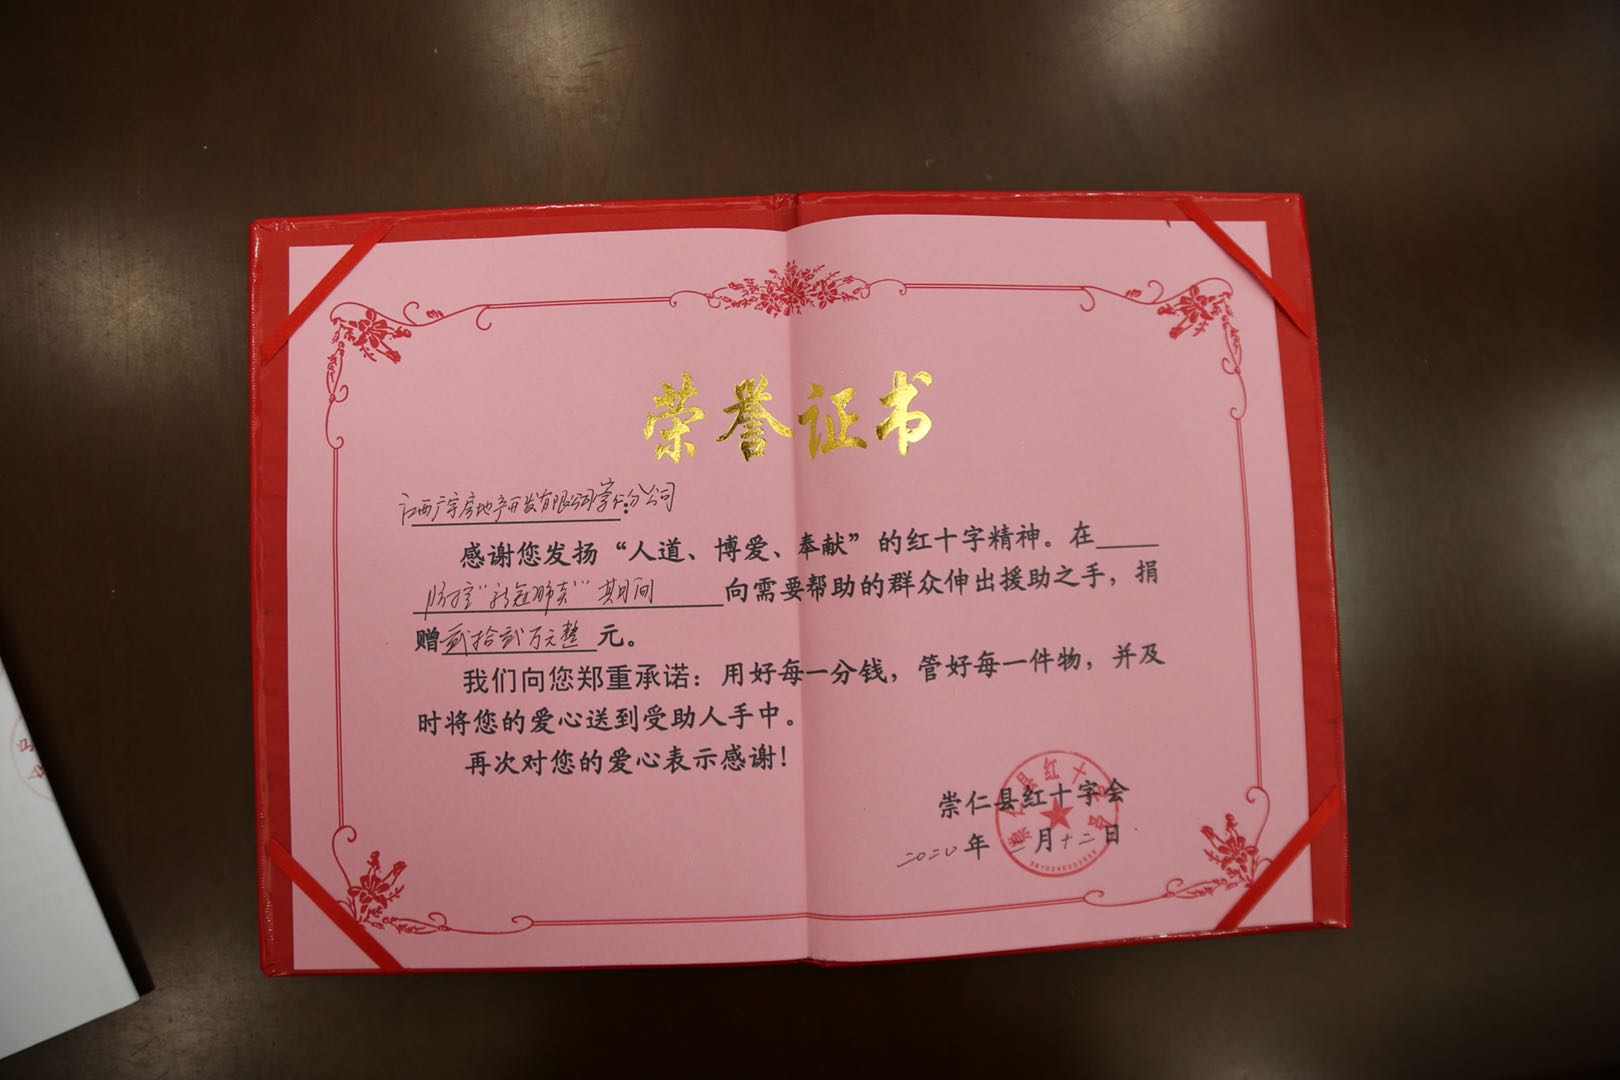 荣誉证书
江西广宇房地产开发有限公司崇仁分公司:
感谢您发扬“人道、博爱、奉献”的红十字精神。在
防控“新冠肺炎”期间 向需要帮助的群众伸出援助之手，捐
赠贰拾贰万元整元。
我们向您郑重承诺：用好每一分钱，管好每一件物，并及
时将您的爱心送到受助人手中。
再次对您的爱心表示感谢！
崇仁县红十字会
二〇二〇年二月十二日
崇仁县红十字会